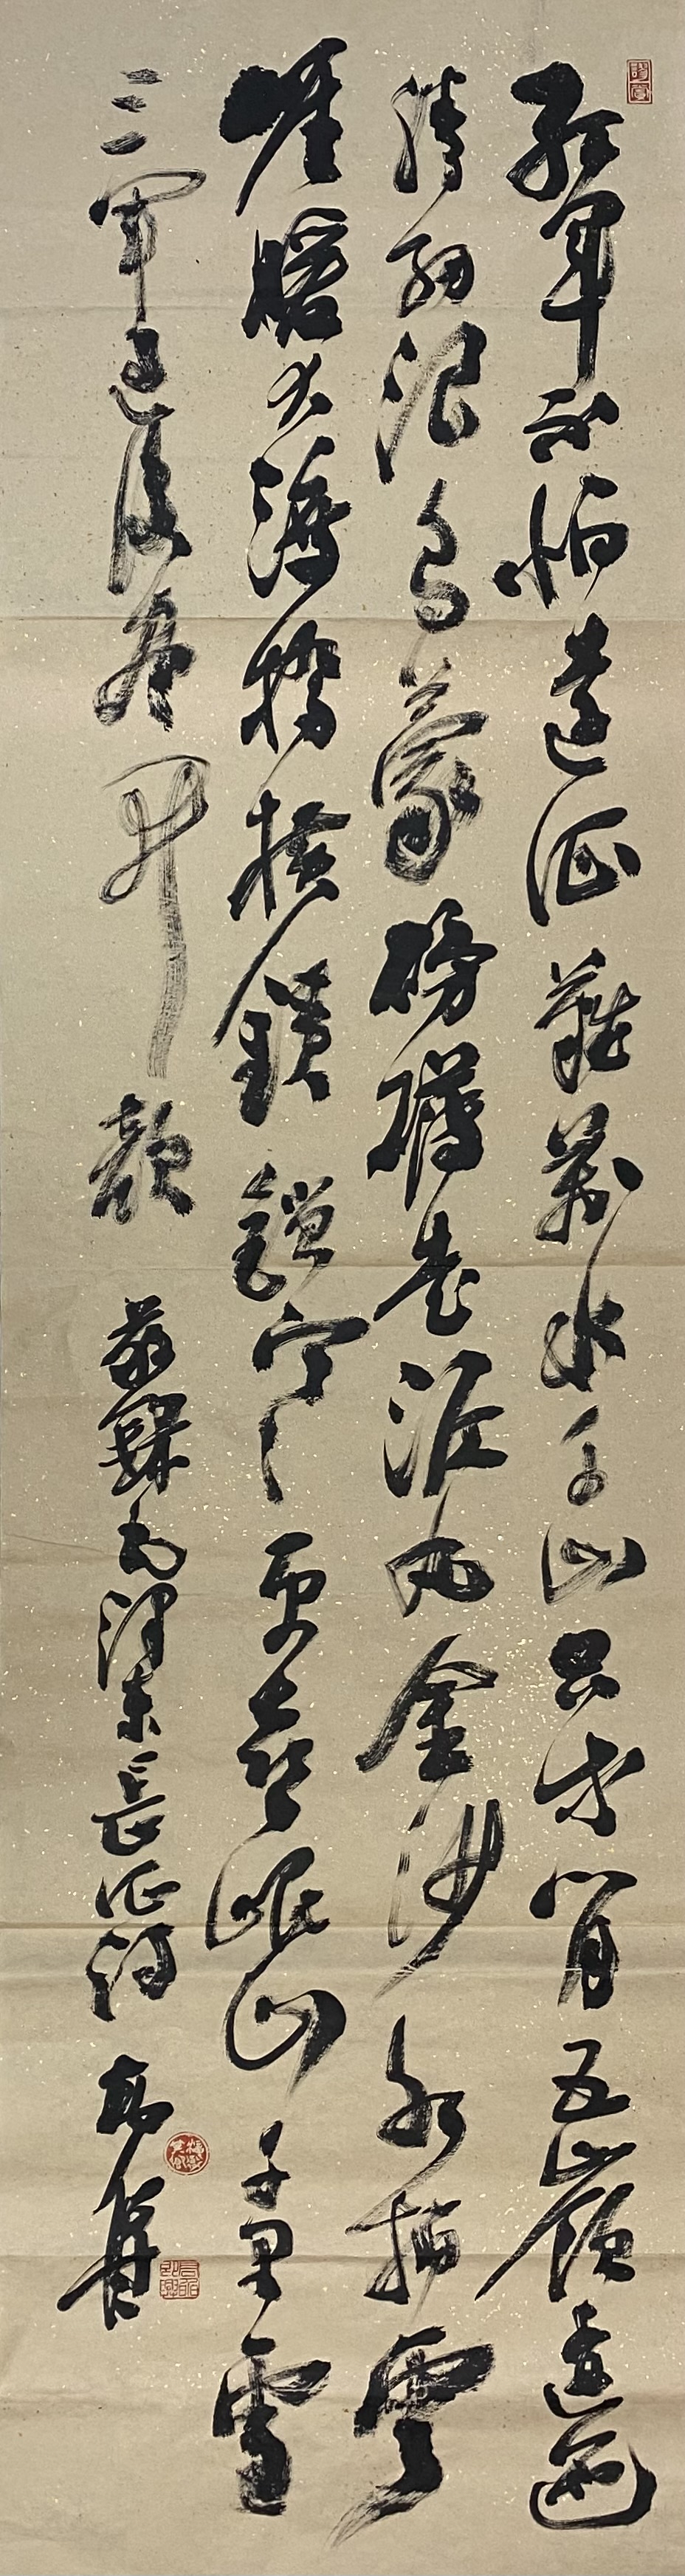 红军不怕远征难万水千山只等闲五岭逶迤
腾细浪乌蒙磅礴走泥丸金沙水拍云
崖暖大渡桥横铁鎻寒更喜岷山千里雪
三军过后尽开颜 敬录毛泽东长征诗